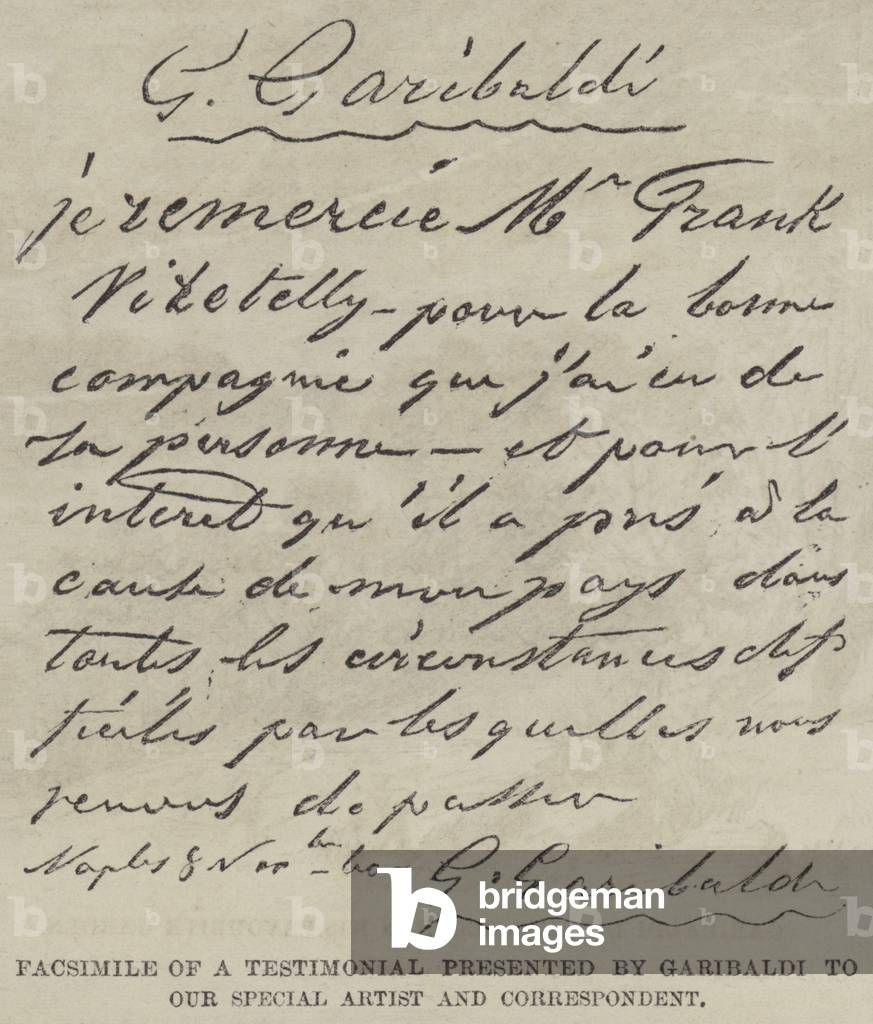 G. Garibaldi
je remercie Mr Frank
Vizetelly - pour la bonne
compagnie que j'ai eu de
sa personne - et pour l'
interet qu'il a pris à la
cause de mon pays dans
toutes les circonstances dif
ficiles par lesquelles nous
venons de passer
Naples 8 Nov
G. Garibaldi
bridgeman
images
FACSIMILE OF A TESTIMONIAL PRESENTED BY GARIBALDI TO
OUR SPECIAL ARTIST AND CORRESPONDENT.